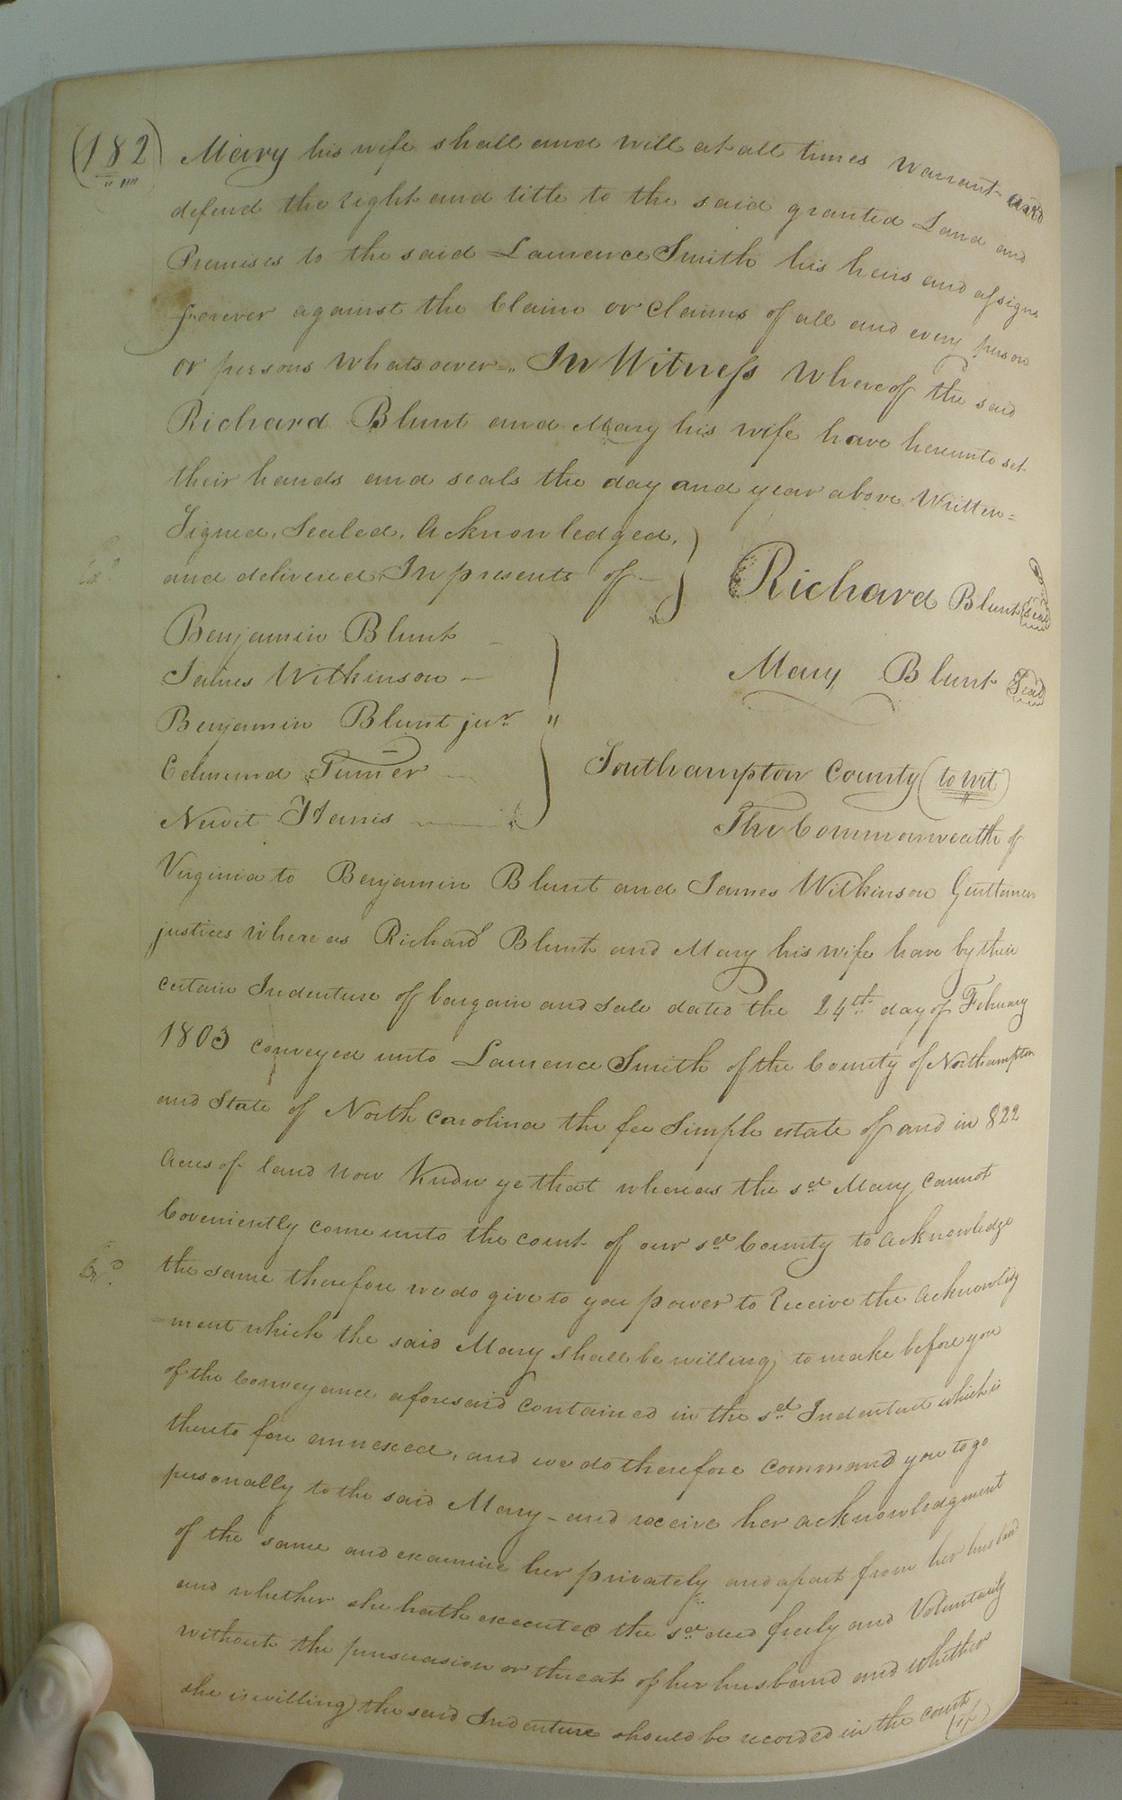 (182) Mary his wife shall and will at all times warrant and
defend the right and title to the said granted Land and
Premises to the said Laurence Smith his heirs and assigns
forever against the Claim or claims of all and every person
or persons whatsoever. In Witness whereof the said
Richard Blunt and Mary his wife have hereunto set
their hands and seals the day and year above Written =
Signed, Sealed, acknowledged,
and delivered In presents of —
Richard Blunt (Seal)
Benjamin Blunt —
James Wilkinson —
Mary Blunt (Seal)
Benjamin Blunt junr
Edmund Turner —
Newit Harris —
Southampton County (to wit)
The Commonwealth of
Virginia to Benjamin Blunt and James Wilkinson Gentlemen
justices where as Richard Blunt and Mary his wife have by their
certain Indenture of bargain and Sale dated the 24th day of February
1803 conveyed unto Laurence Smith of the County of Northampton
and State of North Carolina the fee Simple estate of and in 822
Acres of land now Know ye that whereas the sd Mary cannot
Coveniently come unto the court of our sd County to acknowledge
the same therefore we do give to you power to Receive the acknowlig
=ment which the said Mary shall be willing to make before you
of the Conveyance aforesaid contained in the sd Indenture which is
thereto fore annexed, and we do therefore command you to go
personally to the said Mary - and receive her acknowledgment
of the same and examine her privately and apart from her husband
and whether she hath executed the sd deed freely and Voluntarily
without the persuasion or threat of her husband and whether
she is willing the said Indenture should be recorded in the court
(of)